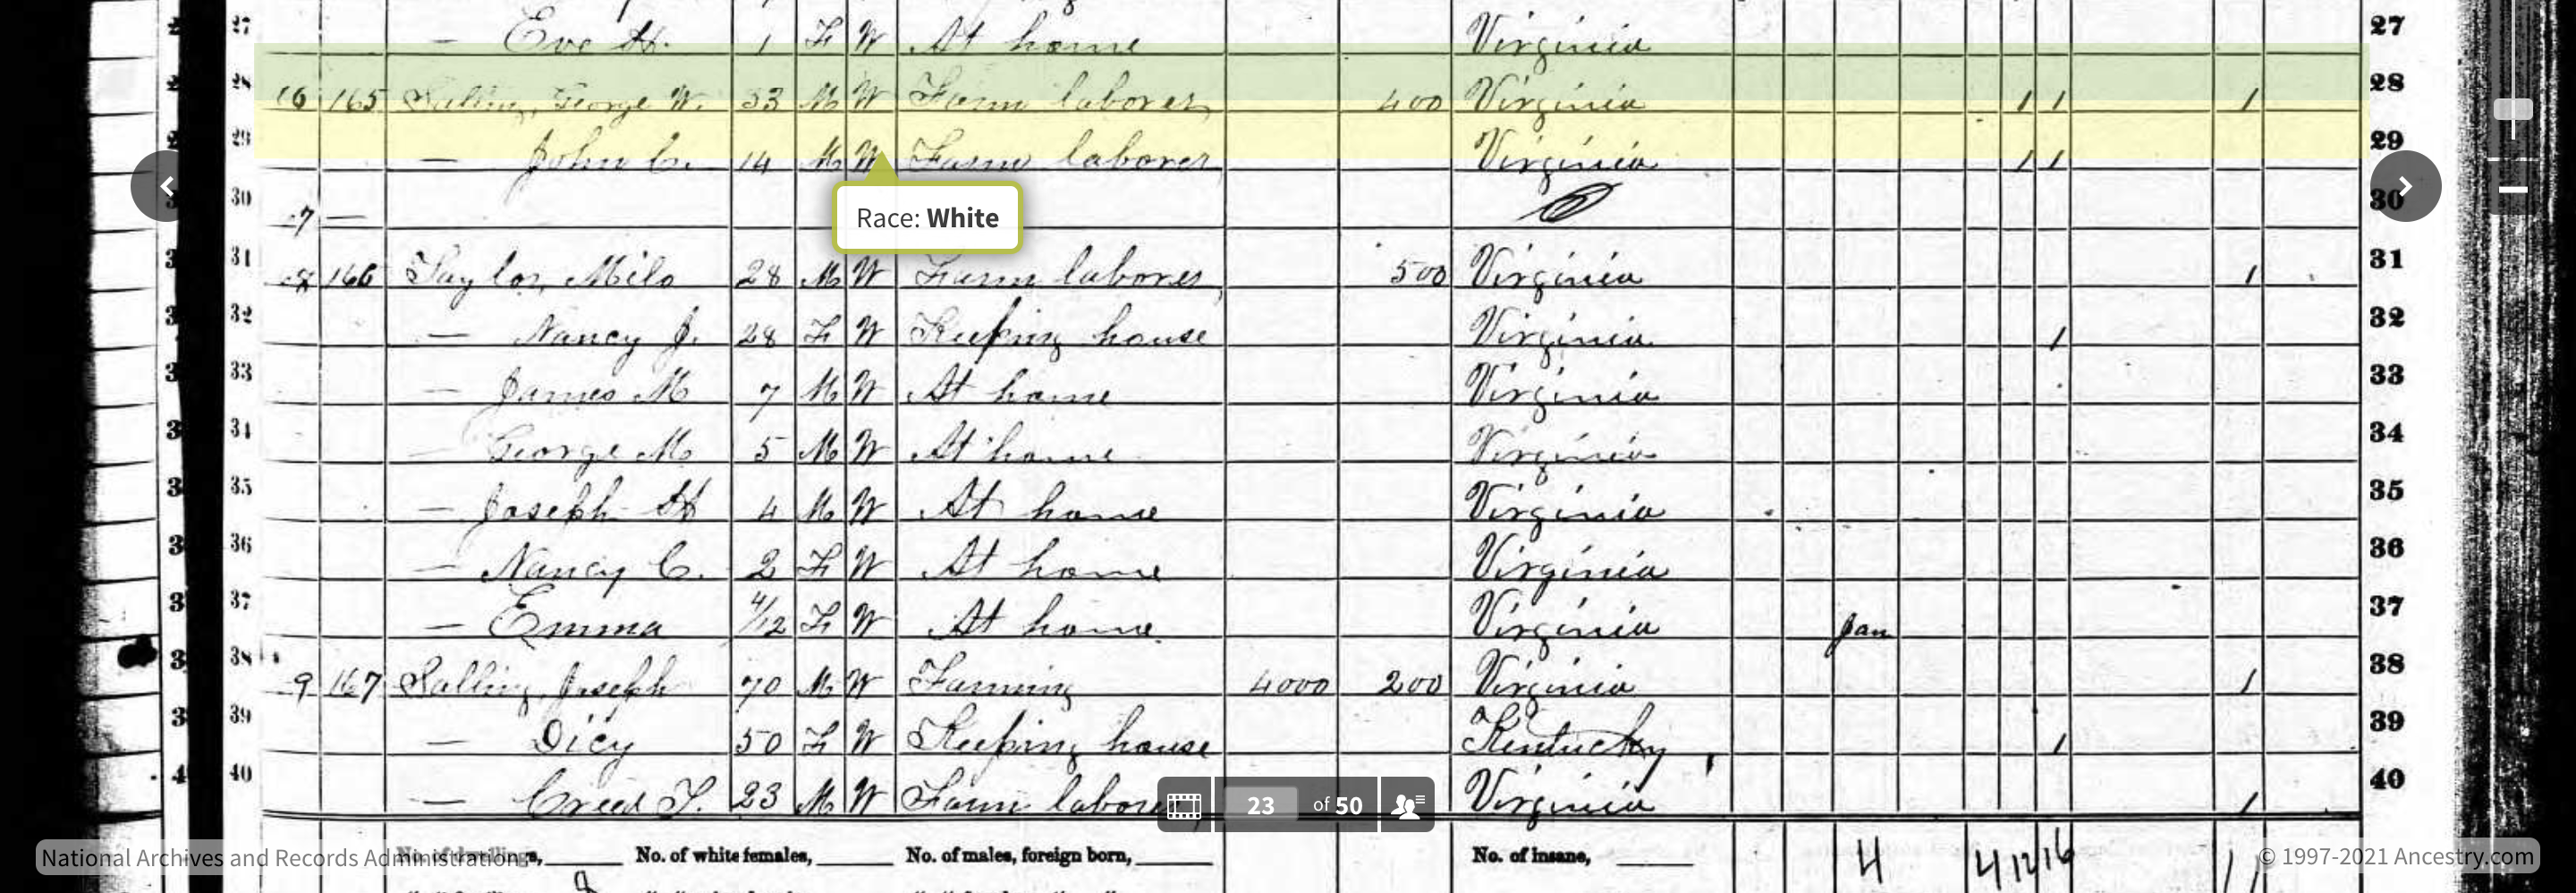 27 — Eve H. 1 F W At home Virginia 27
28 16 165 Salling, George W. 33 M W Farm laborer 400 Virginia 1 1 1 28
29 — John C. 14 M W Farm laborer Virginia 1 1 29
30 7 — 30
Race: White
31 166 Taylor, Milo 28 M W Farm laborer 500 Virginia 1 31
32 — Nancy J. 28 F W Keeping house Virginia 1 32
33 — James M 7 M W At home Virginia 33
34 — George M 5 M W At home Virginia 34
35 — Joseph H 4 M W At home Virginia 35
36 — Nancy C. 2 F W At home Virginia 36
37 — Emma 4/12 F W At home Virginia Jan 37
38 9 167 Salling, Joseph 70 M W Farming 4000 200 Virginia 1 38
39 — Dicy 50 F W Keeping house Kentucky 1 39
40 — Creed T. 23 M W Farm laborer Virginia 1 40
23 of 50
National Archives and Records Administration
No. of white females, No. of males, foreign born, No. of insane, 4 4 12 16 11
© 1997-2021 Ancestry.com